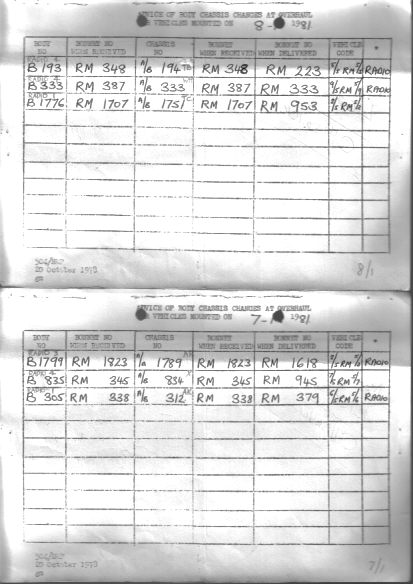 ADVICE OF BODY CHASSIS CHANGES AT OVERHAUL
VEHICLES MOUNTED ON 8- 1981
BODY NO BONNET NO WHEN RECEIVED CHASSIS NO BONNET WHEN RECEIVED BONNET NO WHEN DELIVERED VEHICLE CODE *
RADIO 4
B 193 RM 348 A/B 194 TB RM 348 RM 223 RM RADIO
RADIO 4
B 333 RM 387 A/B 333 RM 387 RM 333 RM RADIO
RADIO 1
B 1776 RM 1707 A/B 1751 TC RM 1707 RM 953 RM
20 October 1978
8/1
ADVICE OF BODY CHASSIS CHANGES AT OVERHAUL
VEHICLES MOUNTED ON 7- 1981
BODY NO BONNET NO WHEN RECEIVED CHASSIS NO BONNET WHEN RECEIVED BONNET NO WHEN DELIVERED VEHICLE CODE *
B 1799 RM 1823 1789 RM 1823 RM 1618 RM RADIO
RADIO 4
B 835 RM 345 A/B 834 X RM 345 RM 945 RM
RADIO 1
B 305 RM 338 A/B 312 RM 338 RM 379 RM RADIO
20 October 1978
7/1